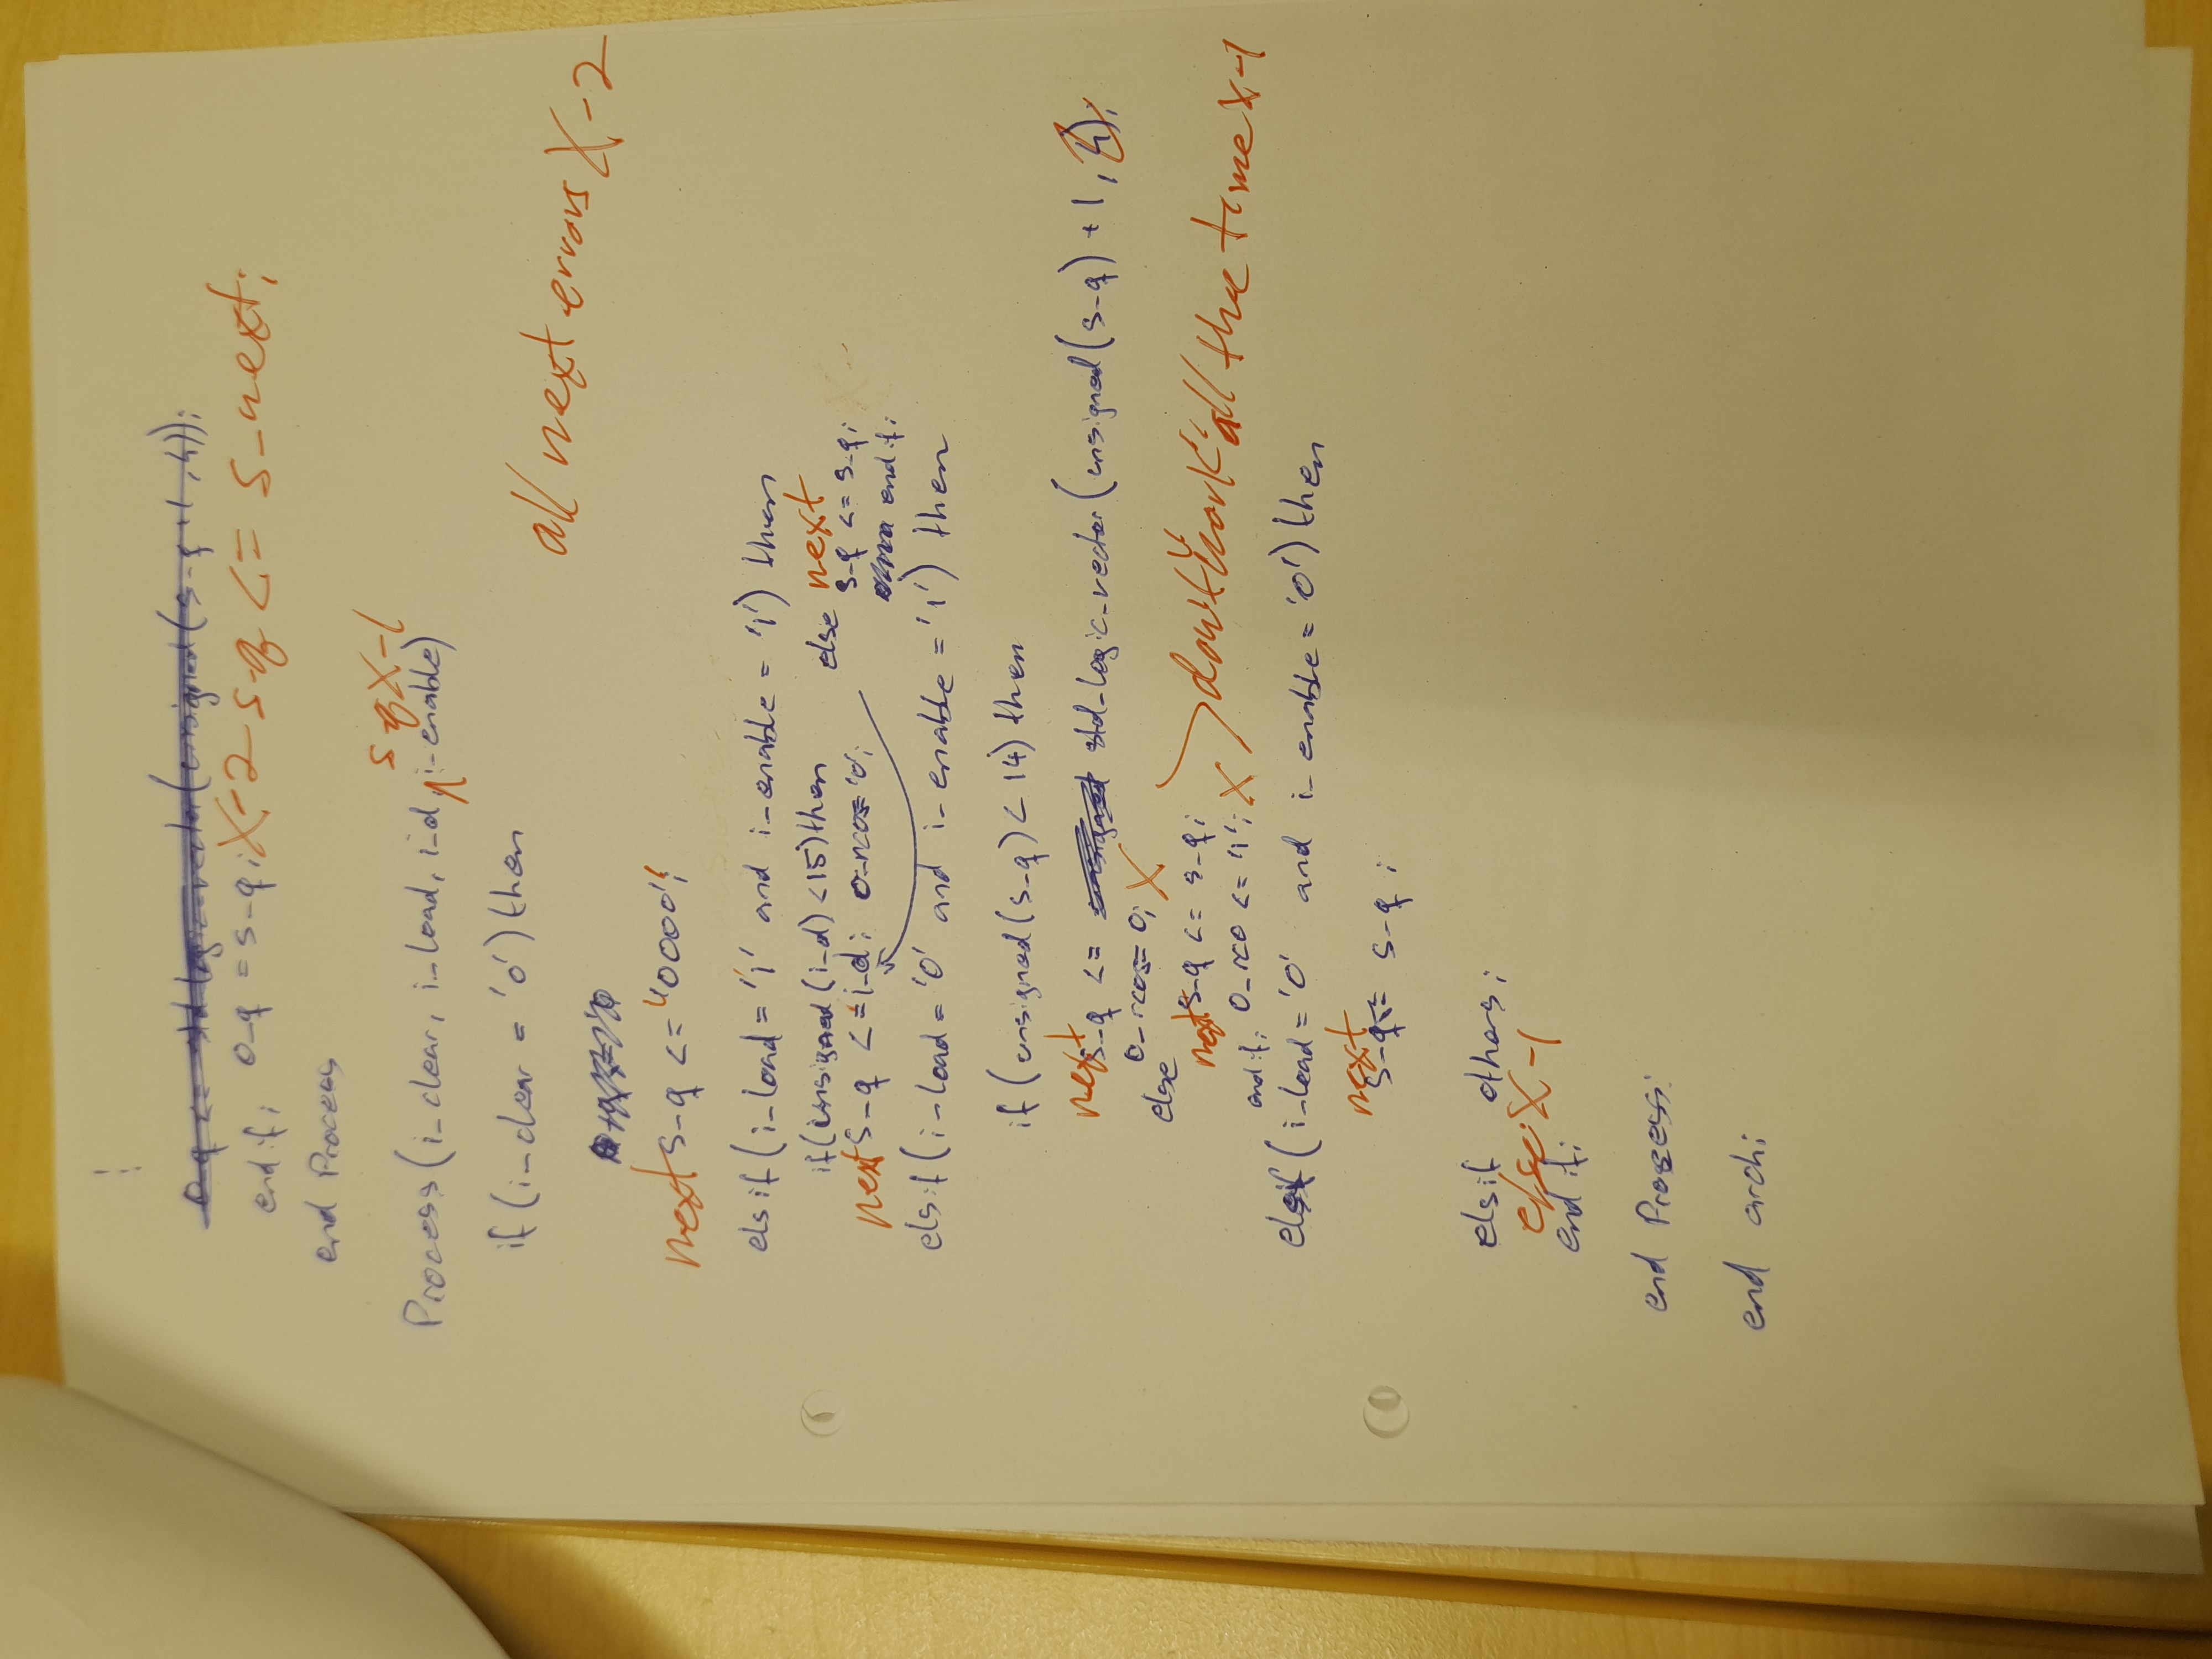 o-q <= std-logic-vector(unsigned(s-q+1,4));
end if; o-q = s-q; X-2 s-q <= s-next;
end Process
s-q X-1
Process(i-clear, i-load, i-d, i-enable)
if(i-clear = '0')then
all next errors X-2
next s-q <= "0000";
elsif(i-load = '1' and i-enable = '1') then
if(unsigned(i-d)<15)then else next
next s-q <= i-d; o-rco<= '0'; s-q <= s-q;
end if;
elsif(i-load = '0' and i-enable = '1') then
if(unsigned(s-q)<14) then
next s-q <= std-logic-vector(unsigned(s-q)+1,4);
o-rco<= 0; X
else
next s-q <= s-q;
don't "work" all the time X-1
end if; o-rco <= '1'; X
elsif(i-load = '0' and i-enable = '0')then
next
s-q <= s-q;
elsif others;
else X-1
end if;
end Process;
end arch;